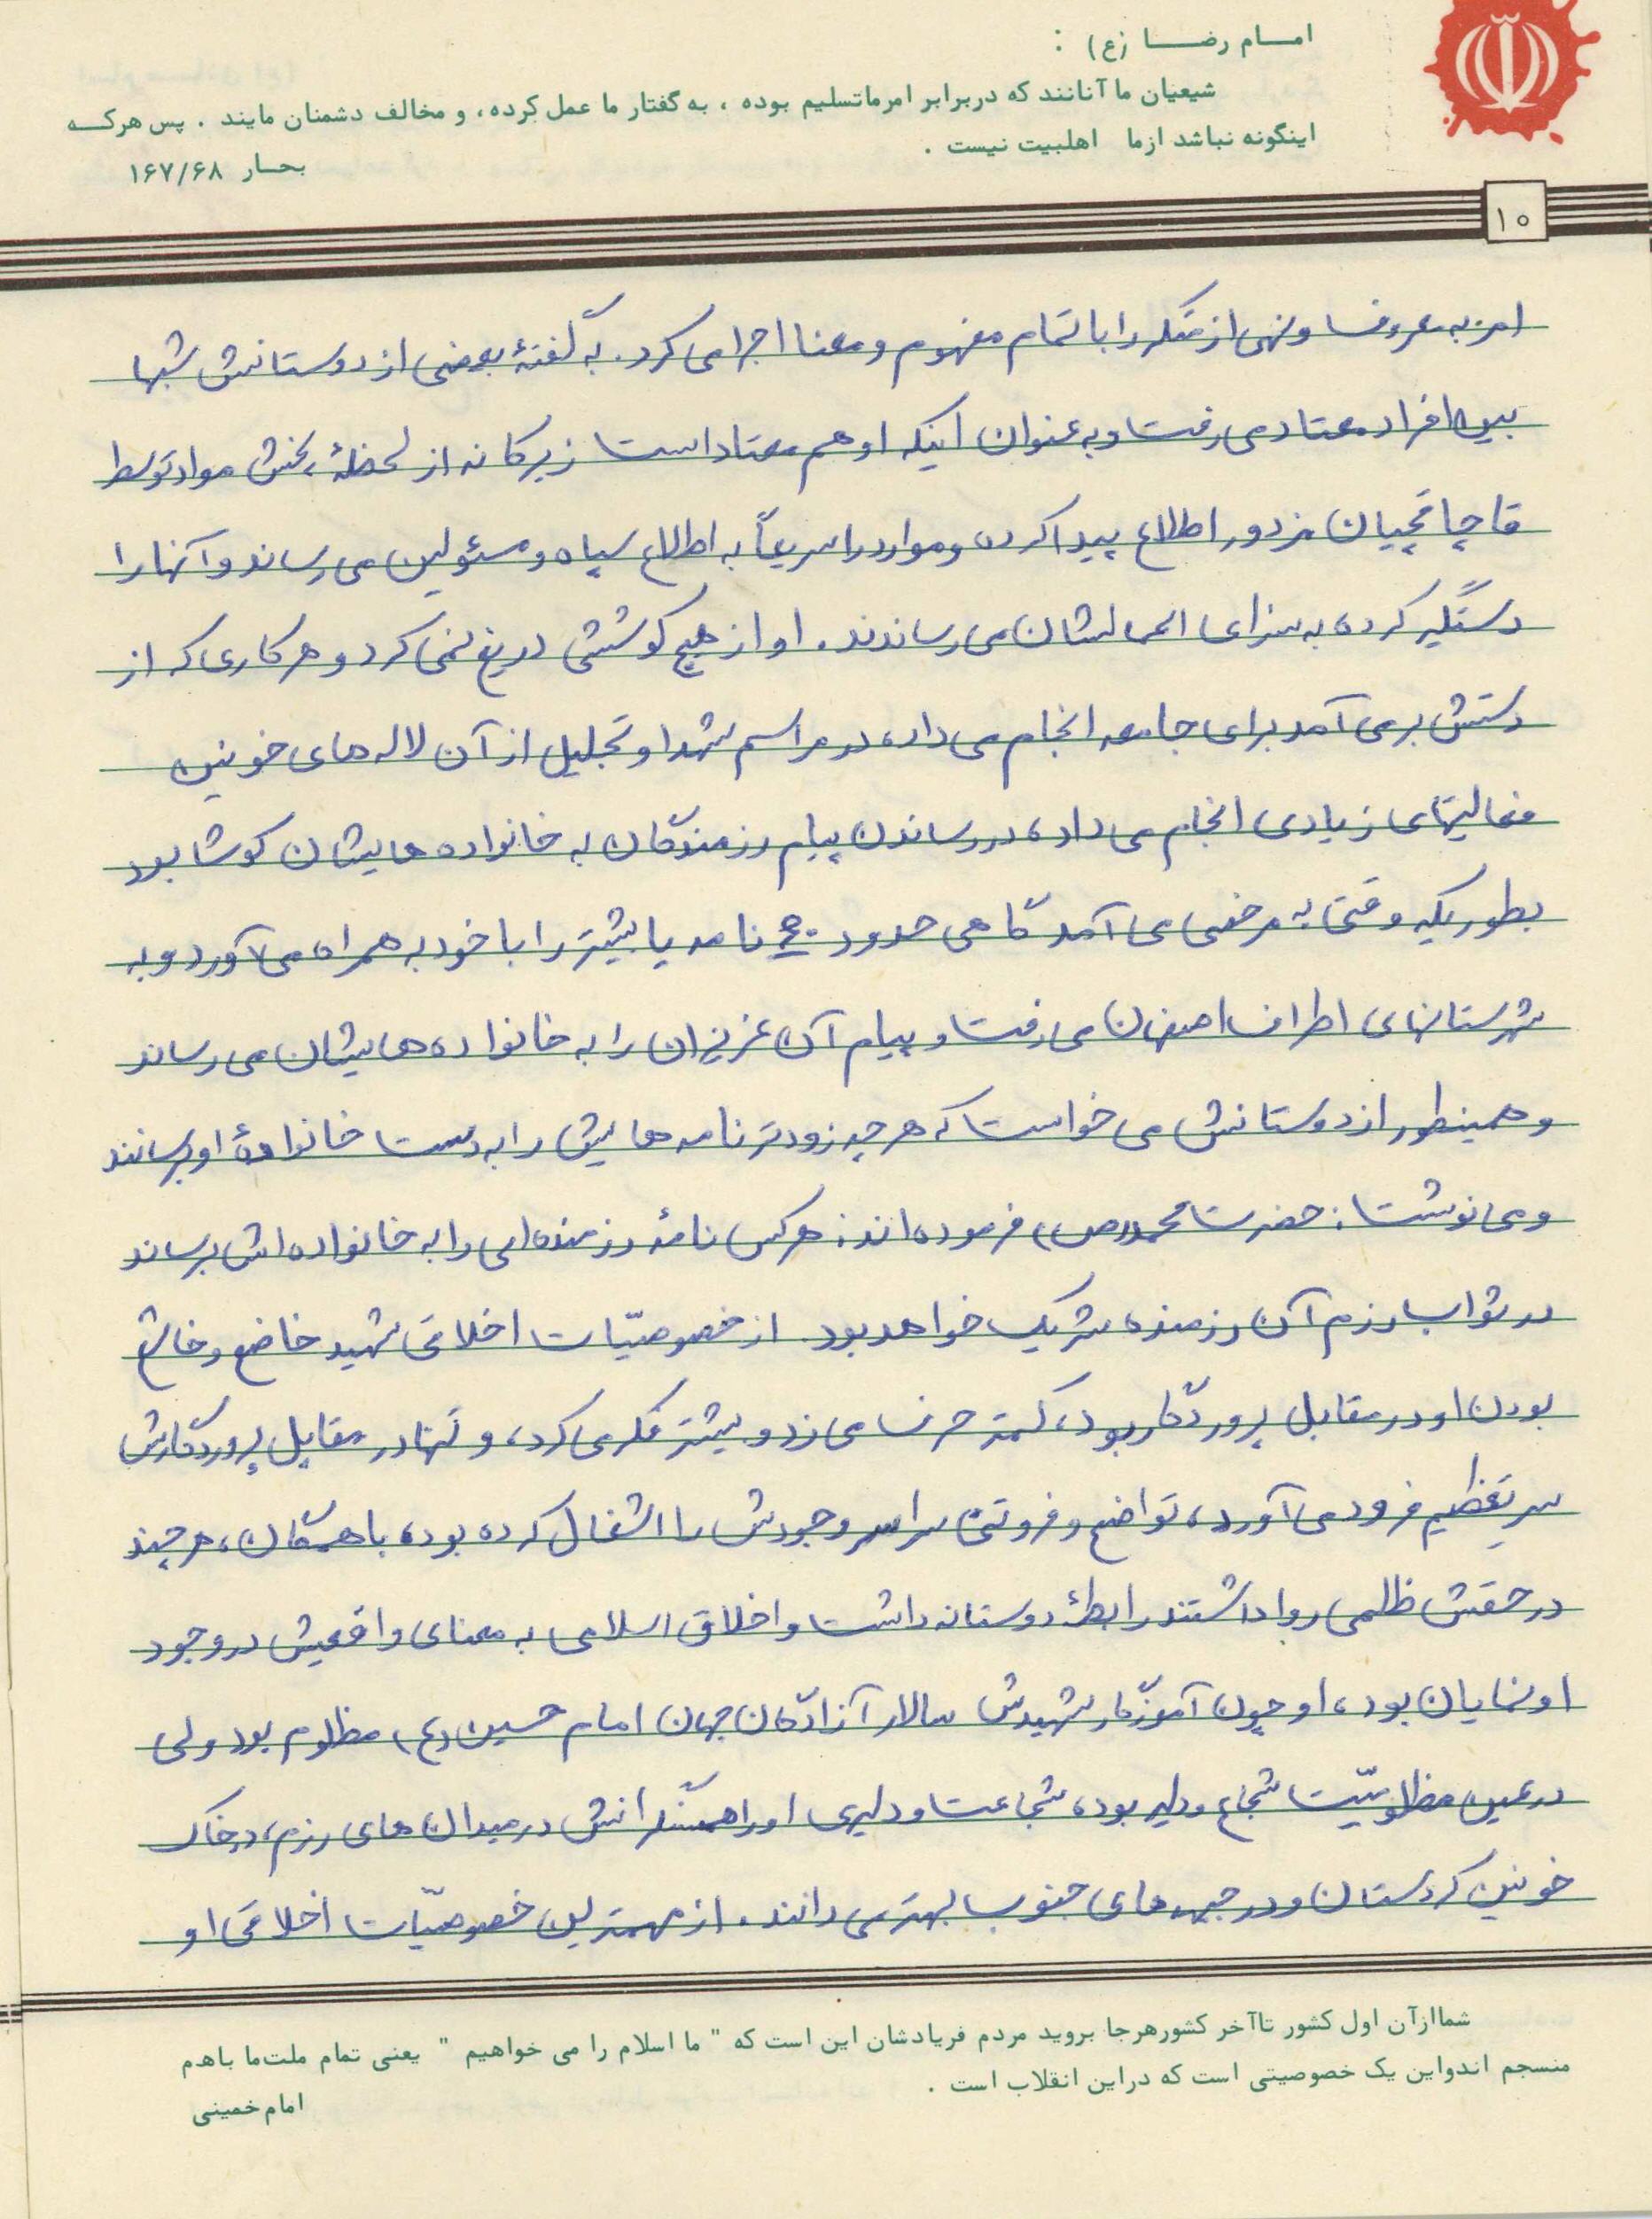 امام رضا (ع) :
شیعیان ما آنانند که دربرابر امرماتسلیم بوده ، به گفتار ما عمل کرده، و مخالف دشمنان مایند . پس هرکه
اینگونه نباشد ازما اهلبیت نیست .
بحار ۱۶۷/۶۸
۱۰
امر به معروف و نهی از منکر را با تمام مفهوم و معنا اجرا می کرد. به گفتهٔ بعضی از دوستانش شبها
بین افراد معتاد می رفت و به عنوان اینکه او هم معتاد است زیرکانه از لحظهٔ پخش مواد توسط
قاچاقچیان مزدور اطلاع پیدا کرده و موارد را سریعاً به اطلاع سپاه و مسئولین می رساند و آنها را
دستگیر کرده به سزای اعمالشان می رساندند. او از هیچ کوششی دریغ نمی کرد و هر کاری که از
دستش برمی آمد برای جامعه انجام می داد، در مراسم شهدا و تجلیل از آن لاله های خونین
فعالیتهای زیادی انجام می داد، در رساندن پیام رزمندگان به خانواده هایشان کوشا بود
بطوریکه وقتی به مرخصی می آمد گاهی حدود ۴۰ نامه یا بیشتر را با خود به همراه می آورد و به
شهرستانهای اطراف اصفهان می رفت و پیام آن عزیزان را به خانواده هایشان می رساند
و همینطور از دوستانش می خواست که هر چه زودتر نامه هایش را به دست خانوادهٔ او برسانند
و می نوشت: حضرت محمد (ص) فرموده اند: هر کس نامهٔ رزمنده ای را به خانواده اش برساند
در ثواب رزم آن رزمنده شریک خواهد بود. از خصوصیّات اخلاقی شهید خاضع و خاشع
بودن او در مقابل پروردگار بود، کمتر حرف می زد و بیشتر فکر می کرد، و تنها در مقابل پروردگارش
سر تعظیم فرود می آورد، تواضع و فروتنی سراسر وجودش را اشغال کرده بود، با همگان، هر چند
در حقش ظلمی روا داشتند رابطهٔ دوستانه داشت و اخلاق اسلامی به معنای واقعیش در وجود
او نمایان بود، او چون آموزگار شهیدش سالار آزادگان جهان امام حسین (ع) مظلوم بود ولی
در عین مظلومیّت شجاع و دلیر بود، شجاعت و دلیری او را همسنگرانش در میدان های رزم، در خاک
خونین کردستان و در جبهه های جنوب بهتر می دانند. از مهمترین خصوصیّات اخلاقی او
شماازآن اول کشور تاآخر کشورهرجا بروید مردم فریادشان این است که " ما اسلام را می خواهیم " یعنی تمام ملت‌ما باهم
منسجم اندواین یک خصوصیتی است که دراین انقلاب است .
امام خمینی